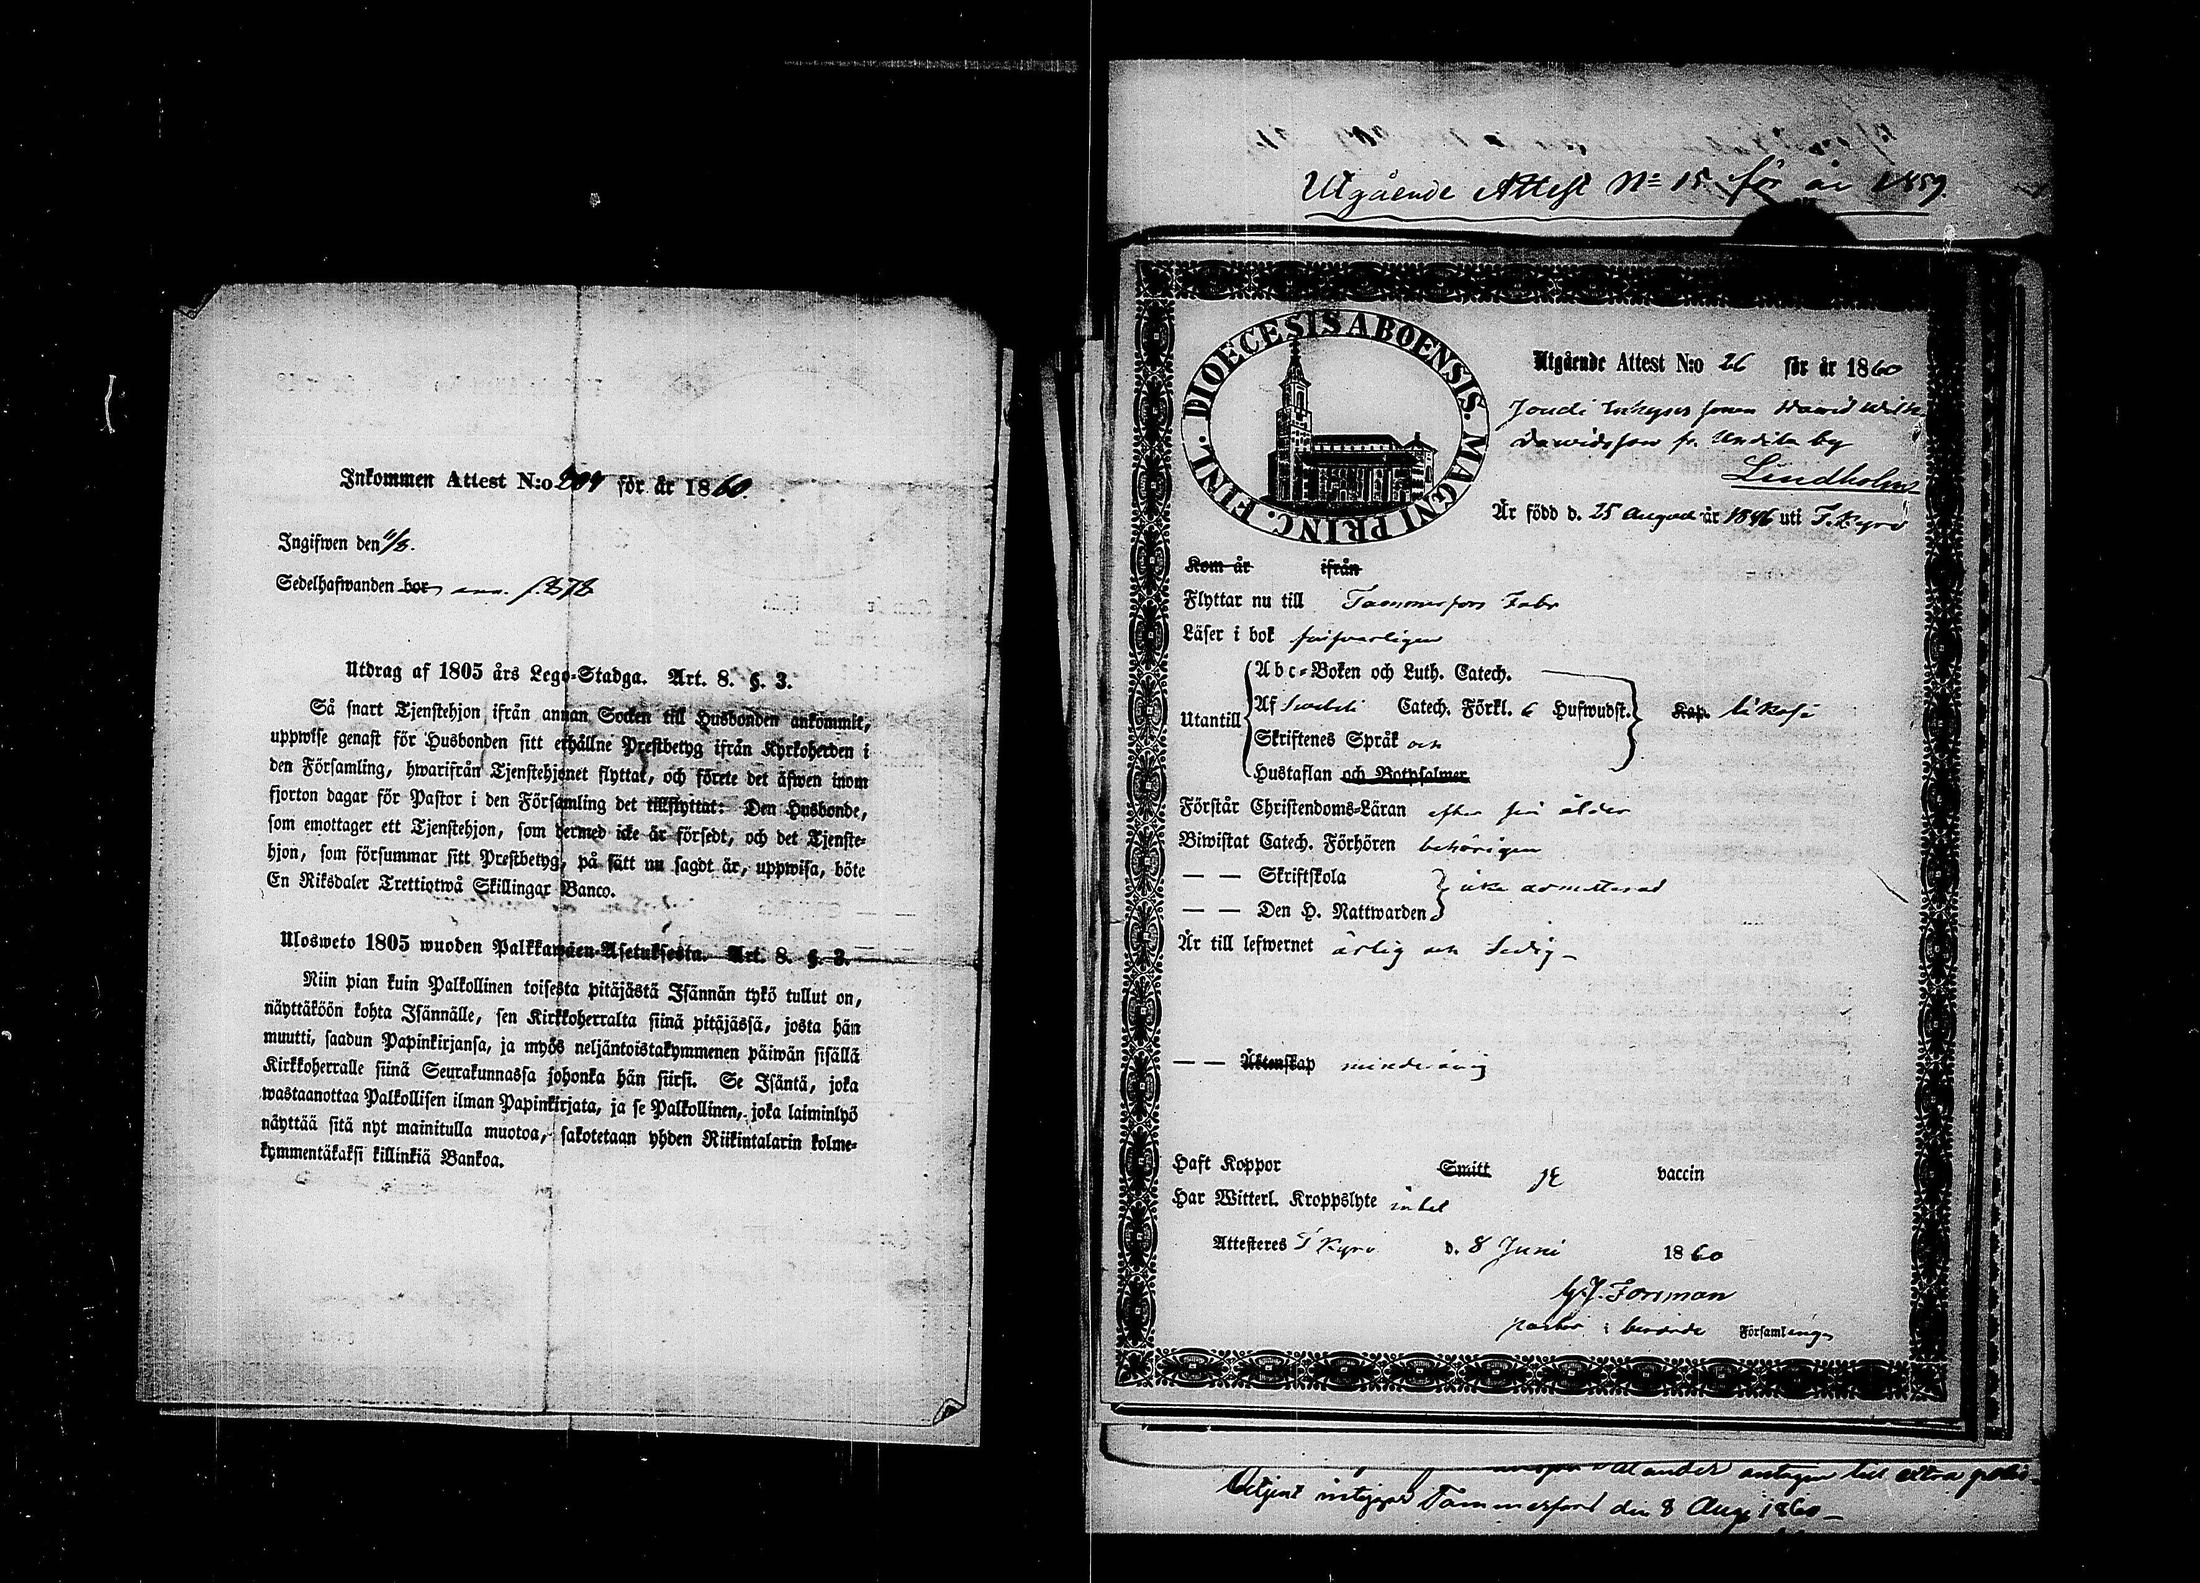 Inkommen Attest N:o 209 för år 1860.
Ingifwen den /8.
Sedelhafwanden bor ann. p. 878
Utdrag af 1805 års Lego-Stadga. Art. 8. §. 3.
Så snart Tjenstehjon ifrån annan Socken till Husbonden ankommit,
uppwise genast för Husbonden sitt erhållne Prestbetyg ifrån Kyrkoherden i
den Församling, hwarifrån Tjenstehjonet flyttat, och förete det äfwen inom
fjorton dagar för Pastor i den Församling det tillflyttat: Den Husbonde,
som emottager ett Tjenstehjon, som dermed icke är försedt, och det Tjenste-
hjon, som försummar sitt Prestbetyg, på sätt nu sagdt är, uppwisa, böte
En Riksdaler Trettiotwå Skillingar Banco.
Ulosweto 1805 wuoden Palkkawäen-Asetuksesta. Art. 8. §. 3.
Niin pian kuin Palkollinen toisesta pitäjästä Isännän tykö tullut on,
näyttäköön kohta Isännälle, sen Kirkkoherralta siinä pitäjässä, josta hän
muutti, saadun Papinkirjansa, ja myös neljäntoistakymmenen päiwän sisällä
Kirkkoherralle siinä Seurakunnassa johonka hän siirsi. Se Isäntä, joka
wastaanottaa Palkollisen ilman Papinkirjata, ja se Palkollinen, joka laiminlyö
näyttää sitä nyt mainitulla muotoa, sakotetaan yhden Riikintalarin kolme-
kymmentäkaksi killinkiä Bankoa.
Utgående Attest No 15 för år 1859.
DIOECESIS ABOENSIS. MAGNI PRINC. FINL.
Utgående Attest N:o 26 för år 1860
Inhyses sonen David Wilh.
Davidsson fr. Undila by
Lindholm
Är född d. 25 August år 1846 uti T.Kyro
Kom år ifrån
Flyttar nu till Tammerfors Fabr
Läser i bok försvarligen
Utantill
Abc-Boken och Luth. Catech.
Af Svebili Catech. Förkl. 6 Hufwudst. Kap. likaså
Skriftenes Språk och
Hustaflan och Botpsalmer
Förstår Christendoms-Läran efter sin ålder
Biwistat Catech. Förhören behörigen
— — Skriftskola
icke admitterad
— — Den H. Nattwarden
Är till lefwernet ärlig och sedig –
— — Äktenskap minderårig
Haft Koppor Smitt vaccin
Har Witterl. Kroppslyte intet
Attesteres T Kyro d. 8 Juni 1860
G.J. Forsman
pastor i berörde Församlinge
antagen till extra poli-
betjent intygas Tammerfors den 8 Aug 1860 –